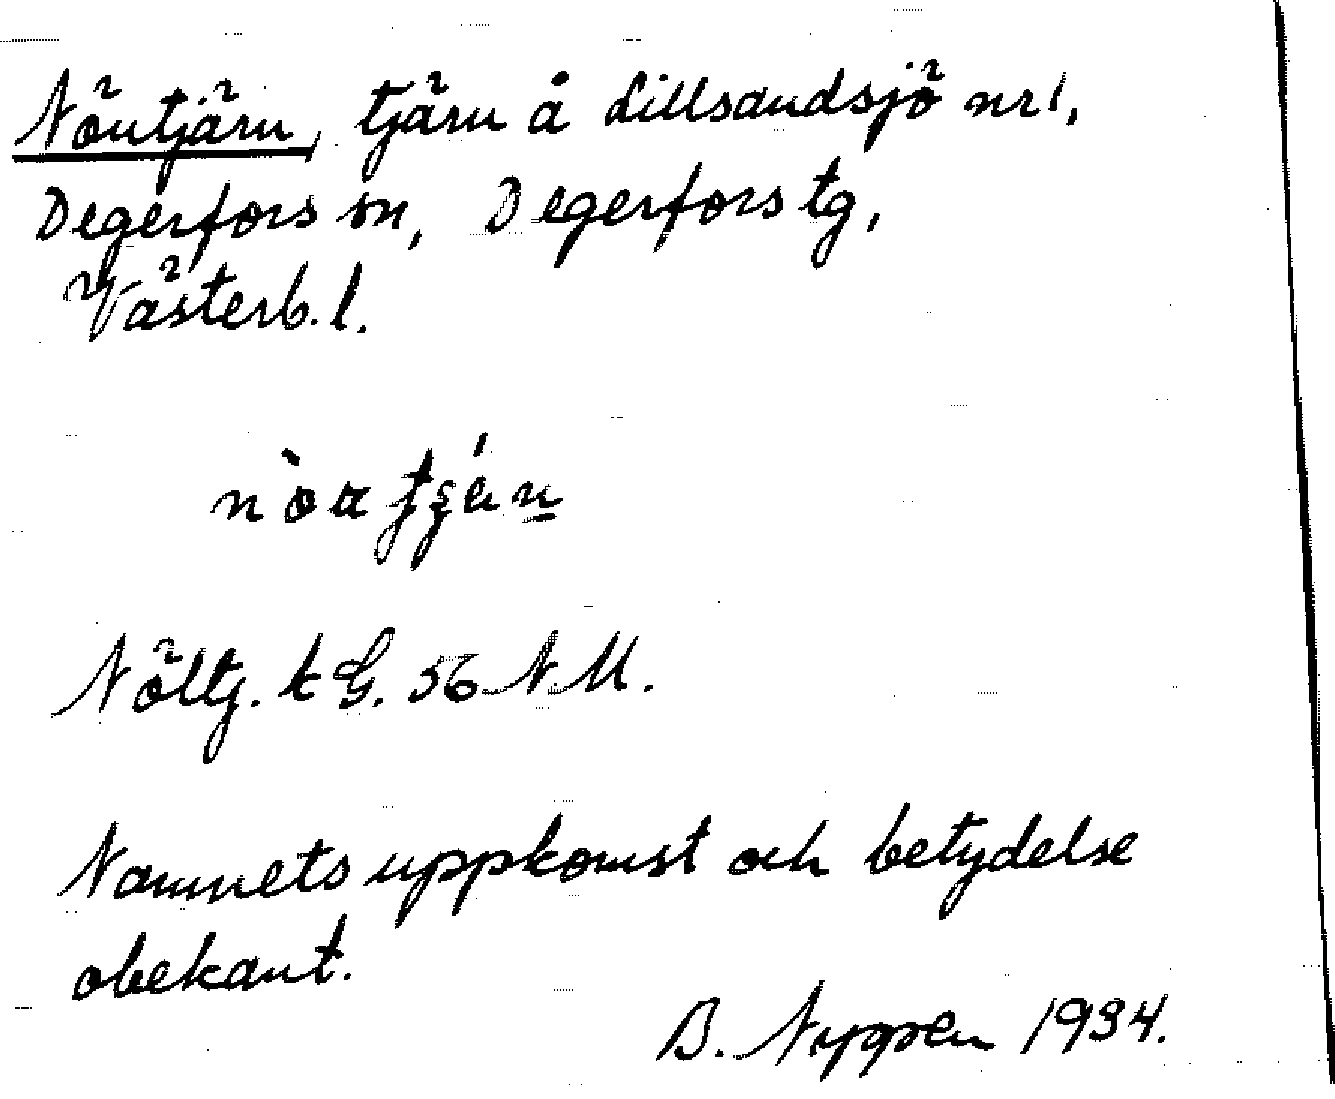 Nöutjärn, tjärn å Lillsandsjö nr 1,
Degerfors sn, Degerfors tg,
Västerb. l.
Nöltj. k G. 56 N.M.
Namnets uppkomst och betydelse
obekant.
B. Nyppen 1934.